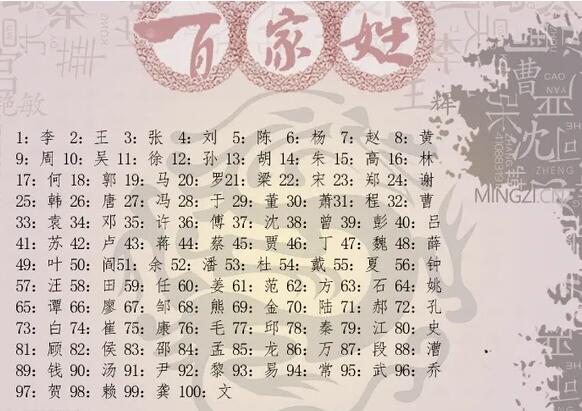 百家姓
1：李 2：王 3：张 4：刘 5：陈 6：杨 7：赵 8：黄
9：周 10：吴 11：徐 12：孙 13：胡 14：朱 15：高 16：林
17：何 18：郭 19：马 20：罗21：梁 22：宋 23：郑 24：谢
25：韩 26：唐 27：冯 28：于 29：董 30：萧31：程 32：曹
33：袁 34：邓 35：许 36：傅 37：沈 38：曾 39：彭 40：吕
41：苏 42：卢 43：蒋 44：蔡 45：贾 46：丁 47：魏 48：薛
49：叶 50：阎51：余 52：潘 53：杜 54：戴 55：夏 56：钟
57：汪 58：田 59：任 60：姜 61：范 62：方 63：石 64：姚
65：谭 66：廖 67：邹 68：熊 69：金 70：陆 71：郝 72：孔
73：白 74：崔 75：康 76：毛 77：邱 78：秦 79：江 80：史
81：顾 82：侯 83：邵 84：孟 85：龙 86：万 87：段 88：漕
89：钱 90：汤 91：尹 92：黎 93：易 94：常 95：武 96：乔
97：贺 98：赖 99：龚 100：文
KOKU
王
辉
艳敏
曹
CAO
YAN
沈
张
ZHANG
ZHENG
MINGZI.CN